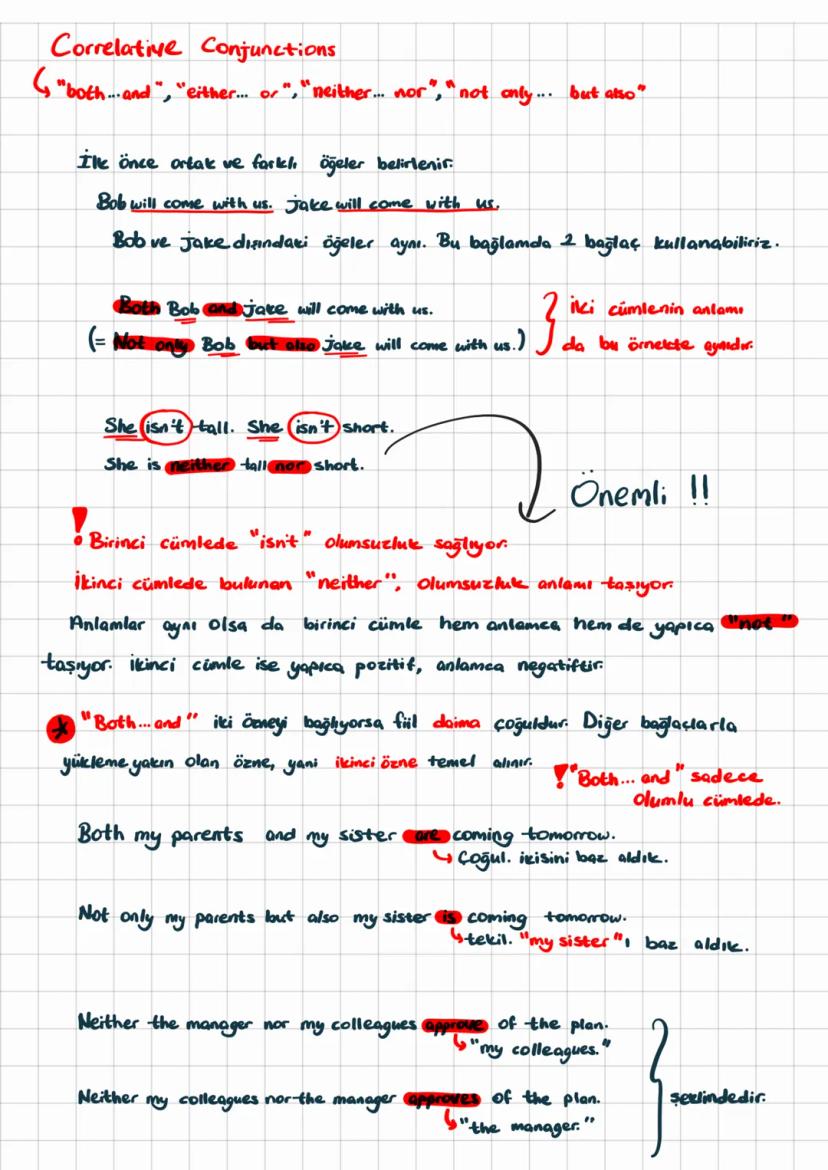 Correlative Conjunctions
"both...and", "either... or", "neither... nor", "not only... but also"
İlk önce ortak ve farklı öğeler belirlenir.
Bob will come with us. Jake will come with us.
Bob ve Jake dışındaki öğeler aynı. Bu bağlamda 2 bağlaç kullanabiliriz.
Both Bob and Jake will come with us.
(= Not only Bob but also Jake will come with us.)
İki cümlenin anlamı
da bu örnekte aynıdır.
She isn't tall. She isn't short.
She is neither tall nor short.
Önemli !!
! Birinci cümlede "isn't" olumsuzluk sağlıyor.
İkinci cümlede bulunan "neither", olumsuzluk anlamı taşıyor.
Anlamlar aynı olsa da birinci cümle hem anlamca hem de yapıca "not"
taşıyor. İkinci cümle ise yapıca pozitif, anlamca negatiftir.
* "Both...and" iki özneyi bağlıyorsa fiil daima çoğuldur. Diğer bağlaçlarla
yükleme yakın olan özne, yani ikinci özne temel alınır.
! "Both... and" sadece
olumlu cümlede.
Both my parents and my sister are coming tomorrow.
Çoğul. ikisini baz aldık.
Not only my parents but also my sister is coming tomorrow.
tekil. "my sister"ı baz aldık.
Neither the manager nor my colleagues approve of the plan.
"my colleagues."
Neither my colleagues nor the manager approves of the plan.
"the manager."
şeklindedir.